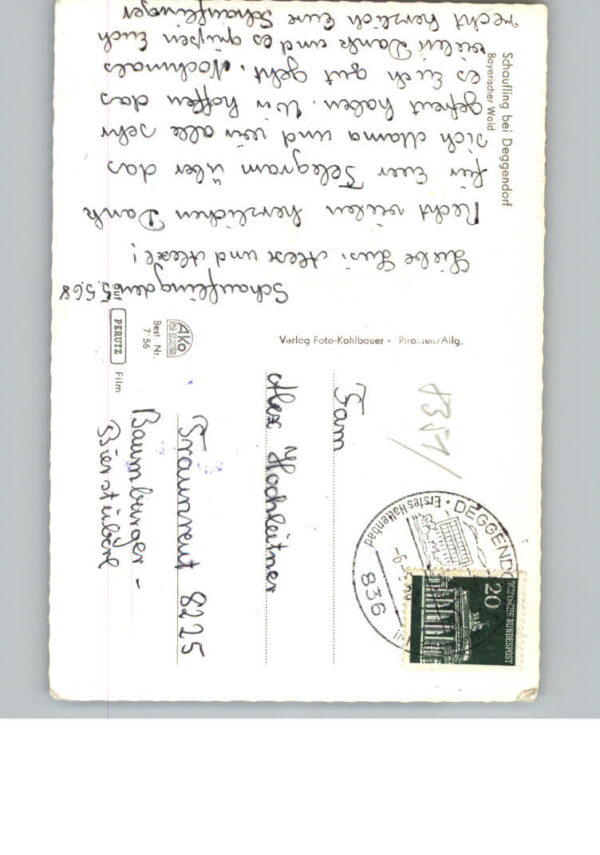 Schaufling bei Deggendorf
Bayerischer Wald
Schaufling den 5.5.68
Liebe Susi Alex und Alex!
Recht vielen herzlichen Dank
für Euer Telegram über das
sich Mama und wir alle sehr
gefreut haben. Wir hoffen das
es Euch gut geht. Nochmals
vielen Dank und es grüßen Euch
recht herzlich Eure Schauflinger
Verlag Foto-Kohlbauer · Pfronten/Allg.
AKO
Best. Nr.
7'56
auf PERUTZ Film
Fam
Alex Hochleitner
Traunreut 8225
Baumburger-
Bierstüberl
1351/
836 DEGGENDO
Erstes Hallenbad
20
DEUTSCHE BUNDESPOST